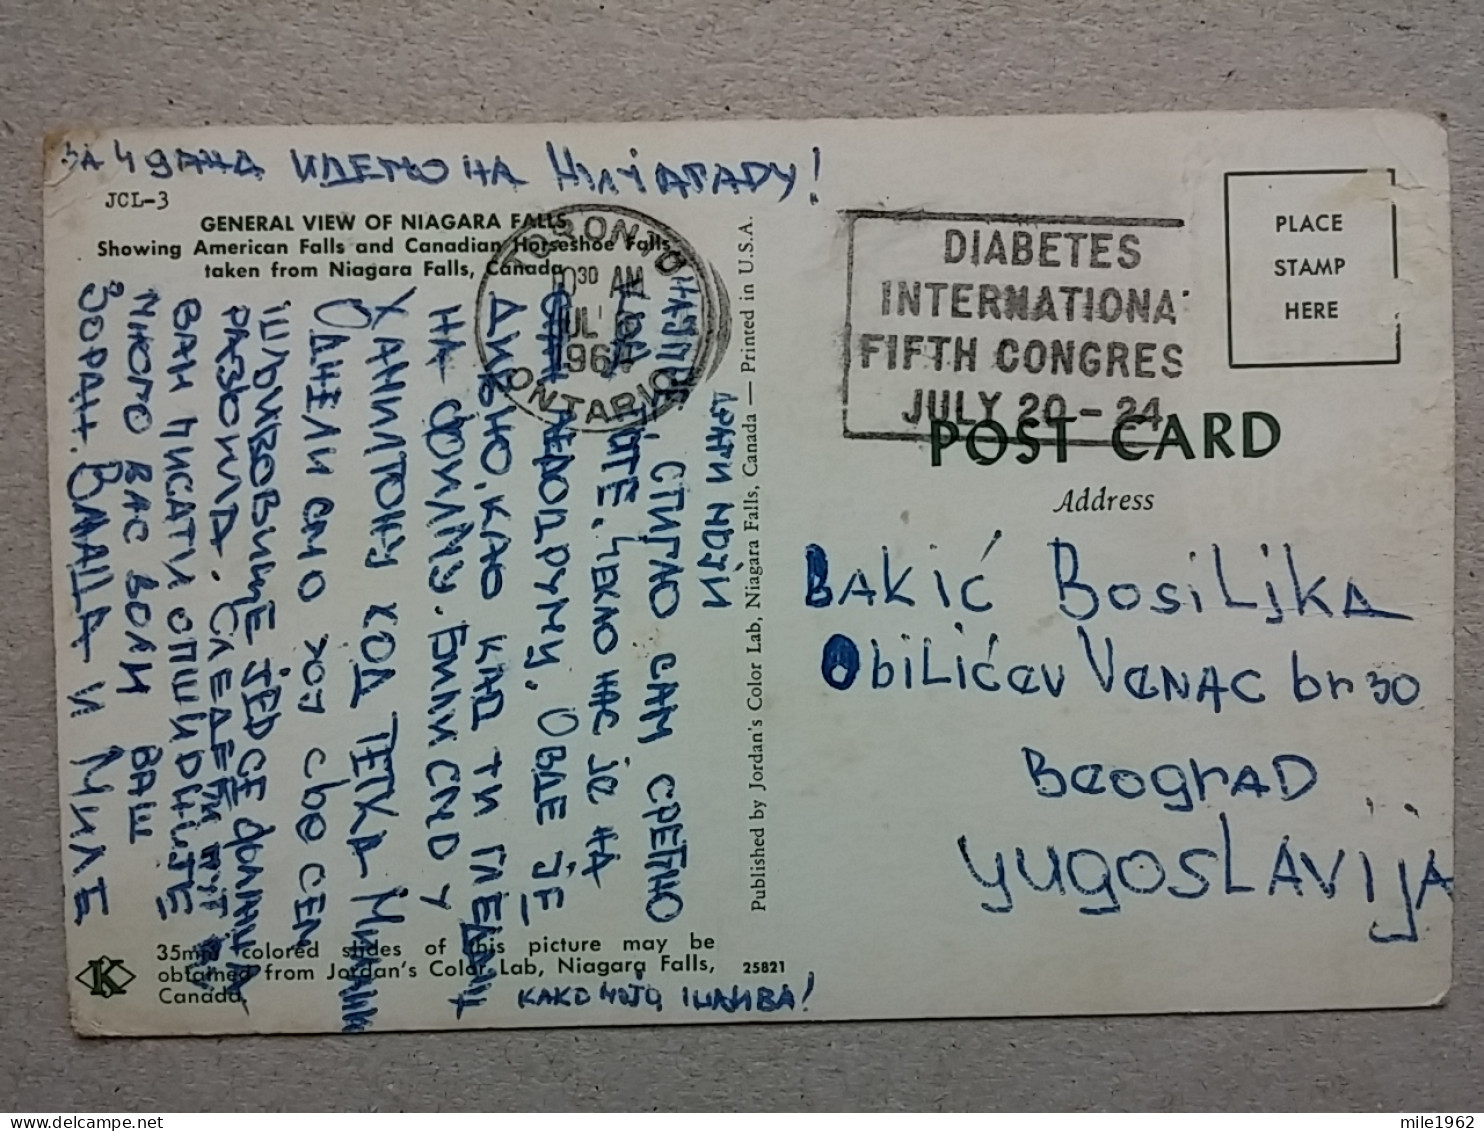 ЗА 4 ДАНА ИДЕМО НА НИЈАГАРУ!
JCL-3
GENERAL VIEW OF NIAGARA FALLS
Showing American Falls and Canadian Horseshoe Falls
taken from Niagara Falls, Canada
TORONTO
30 AM
1964
ONTARIO
DIABETES
INTERNATIONA
FIFTH CONGRES
JULY 20-24
PLACE
STAMP
HERE
POST CARD
Address
ДРАГИ МОЈИ
СТИГАО САМ СРЕЋНО
ЧЕКАО НАС ЈЕ НА
АЕРОДРОМУ. ОВДЕ ЈЕ
ДИВНО, КАО КАД ТИ ГЛЕДАШ
НА ФИЛМУ. БИЛИ СМО У
ХАМИЛТОНУ КОД ТЕТКА
ОДНЕЛИ СМО ЈОЈ СВЕ СЕМ
ШЉИВОВИЦЕ ЈЕР СЕ ФЛАША
РАЗБИЛА. СЛЕДЕЋИ ПУТ ЋУ
ВАМ ПИСАТИ ОПШИРНИЈЕ
МНОГО ВАС ВОЛИ ВАШ
ЗОРАН. ВЛАДА И МИЛЕ
Published by Jordan's Color Lab, Niagara Falls, Canada — Printed in U.S.A.
BAKIĆ BOSILJKA
OBILIĆEV VENAC br 30
BEOGRAD
YUGOSLAVIJA
K
35mm colored slides of this picture may be
obtained from Jordan's Color Lab, Niagara Falls,
Canada.
25821
КАКО МОЈА
mile1962